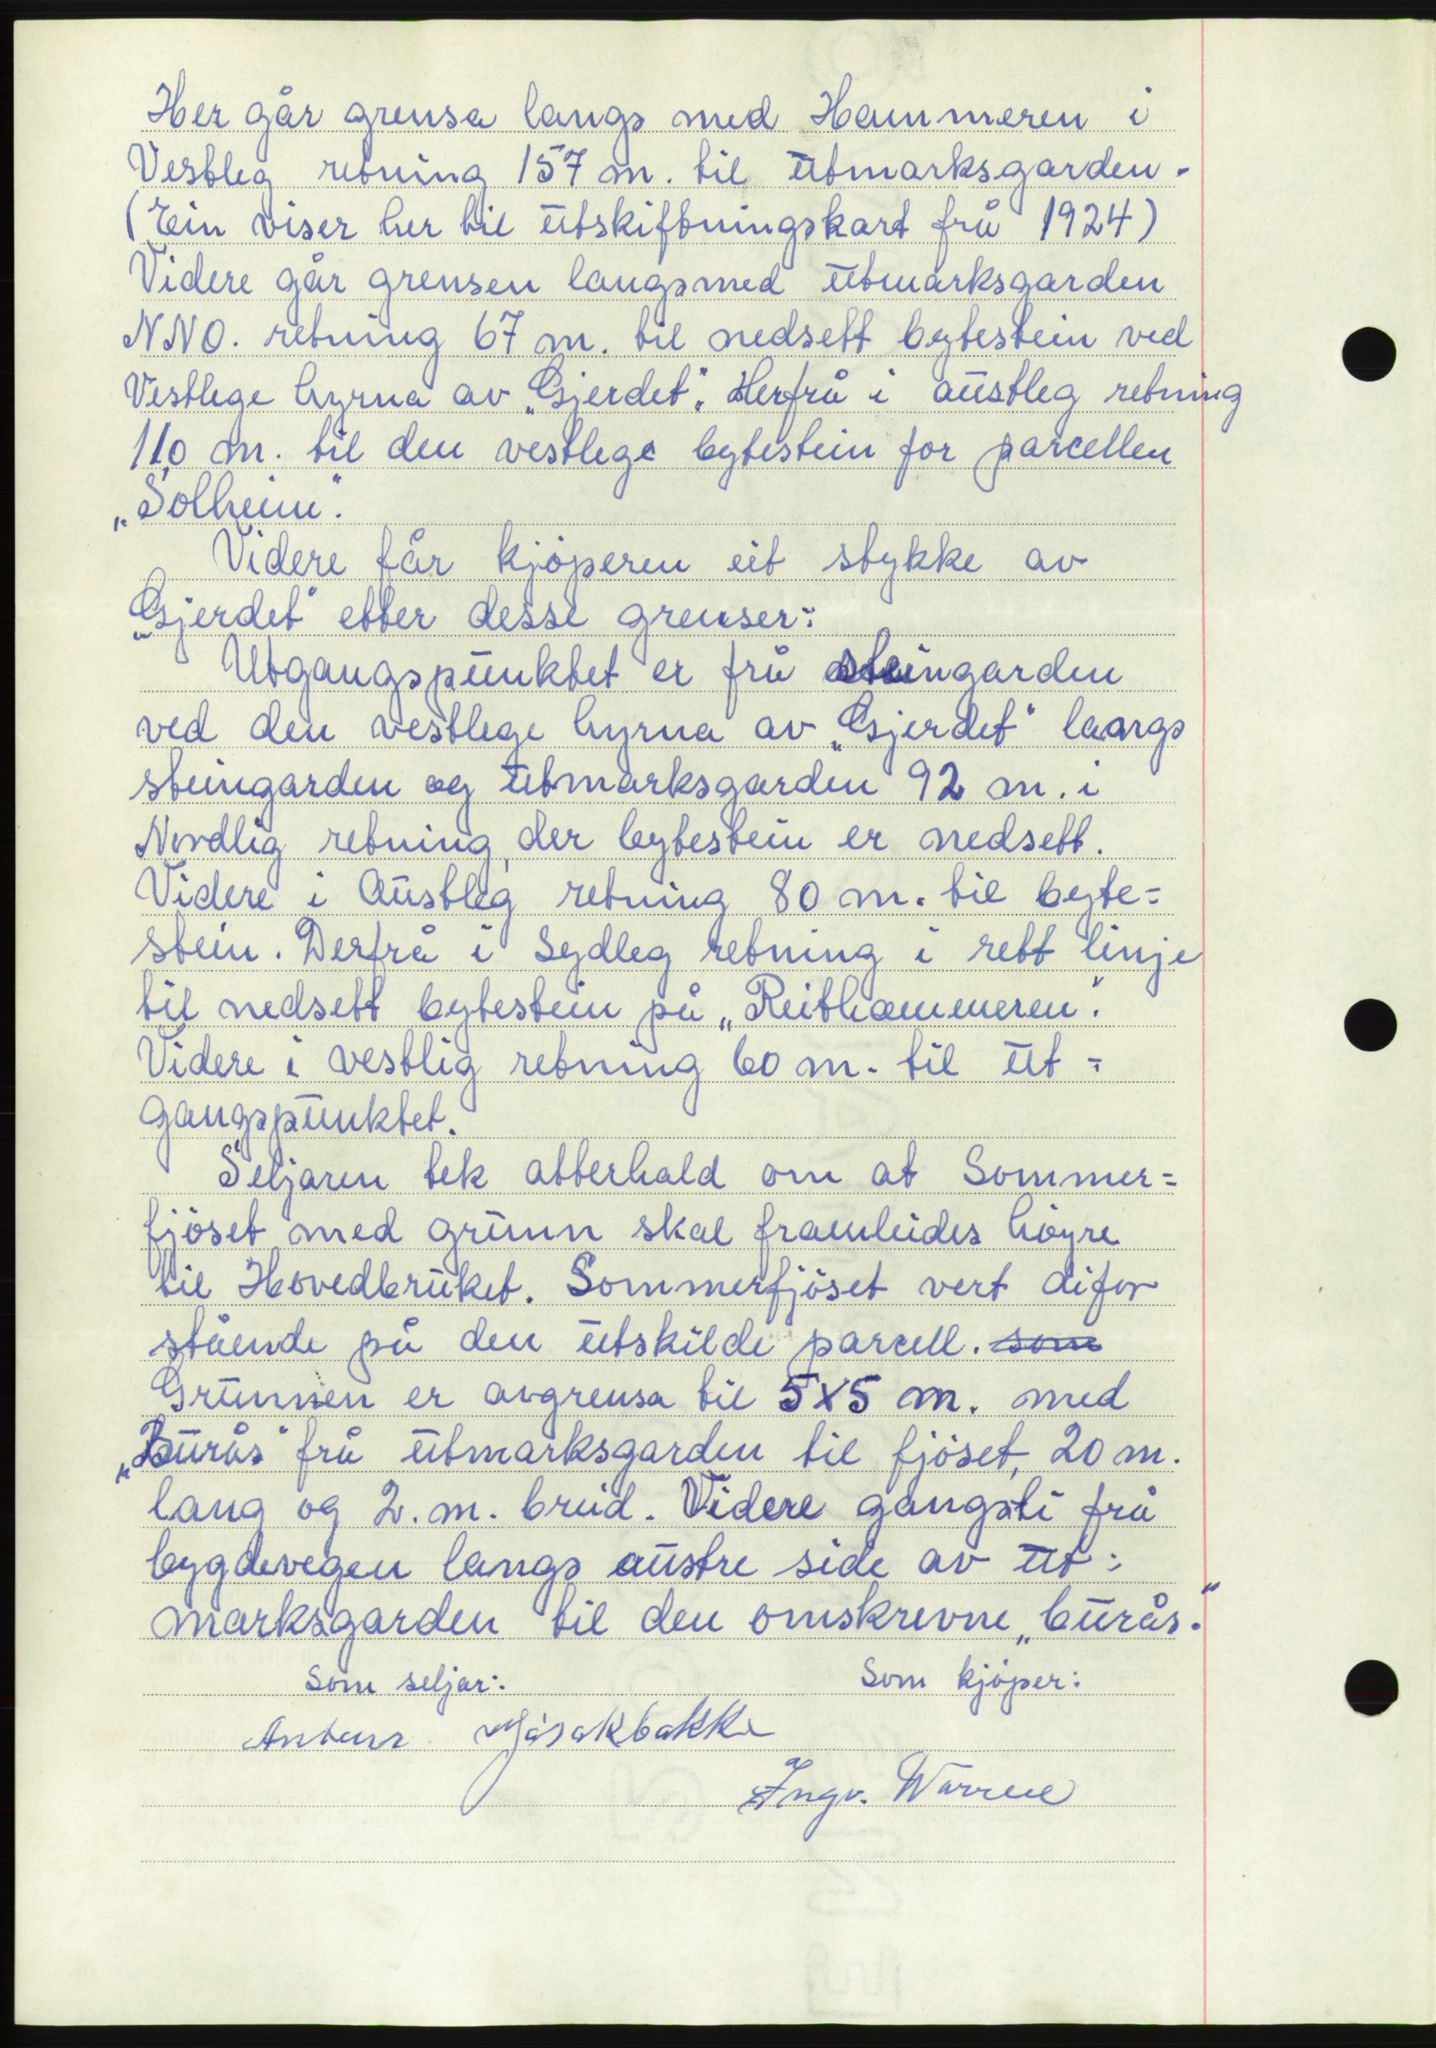 Her går grensa langs med Hammeren i
Vestleg retning 157 m. til utmarksgarden.
(Ein viser her til utskiftningskart frå 1924)
Videre går grensen langsmed utmarksgarden
NNO. retning 67 m. til nedsett bytestein ved
Vestlege hyrna av „Gjerdet“. Herfrå i austleg retning
110 m. til den vestlege bytestein for parcellen
„Solheim“.
Videre får kjöperen eit stykke av
„Gjerdet“ etter desse grenser:
Utgangspunktet er frå steingarden
ved den vestlege hyrna av „Gjerdet“ langs
steingarden og utmarksgarden 92 m. i
Nordlig retning, der bytestein er nedsett.
Videre i Austleg retning 80 m. til byte=
stein. Derfrå i Sydleg retning i rett linje
til nedsett bytestein på „Reithammeren“.
Videre i vestlig retning 60 m. til ut=
gangspunktet.
Seljaren tek atterhald om at Sommer=
fjöset med grunn skal framleides höyre
til Hovedbruket. Sommerfjöset vert difor
stående på den utskilde parcell. som
Grunnen er avgrensa til 5x5 m. med
„Burås“ frå utmarksgarden til fjöset, 20 m.
lang og 2. m. breid. Videre gangsti frå
bygdevegen langs austre side av ut=
marksgarden til den omskrevne „burås.“
Som seljar: Som kjöper:
Ingv.